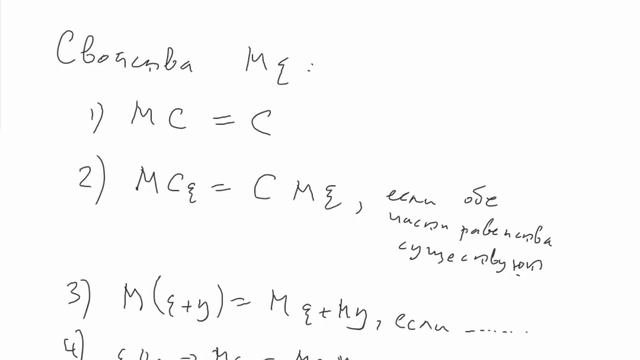 Свойства Mξ :
1) MC = C
2) MCξ = C Mξ, если обе
части равенства
существуют
3) M(ξ+y) = Mξ+My, если .......
4)